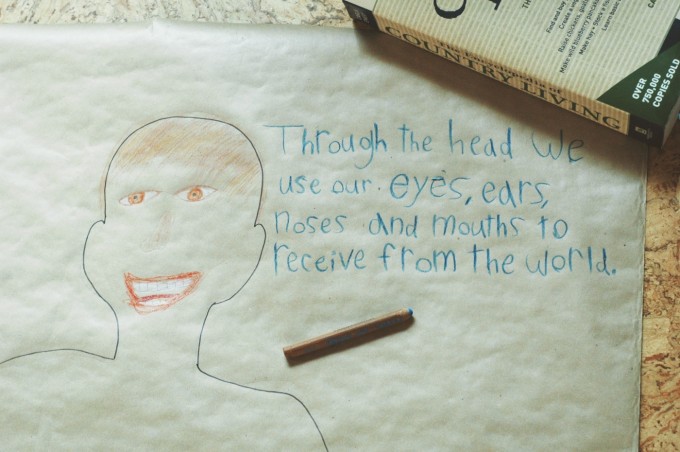 Through the head we
use our eyes, ears,
noses and mouths to
receive from the world.
COUNTRY LIVING
OVER
750,000
COPIES SOLD